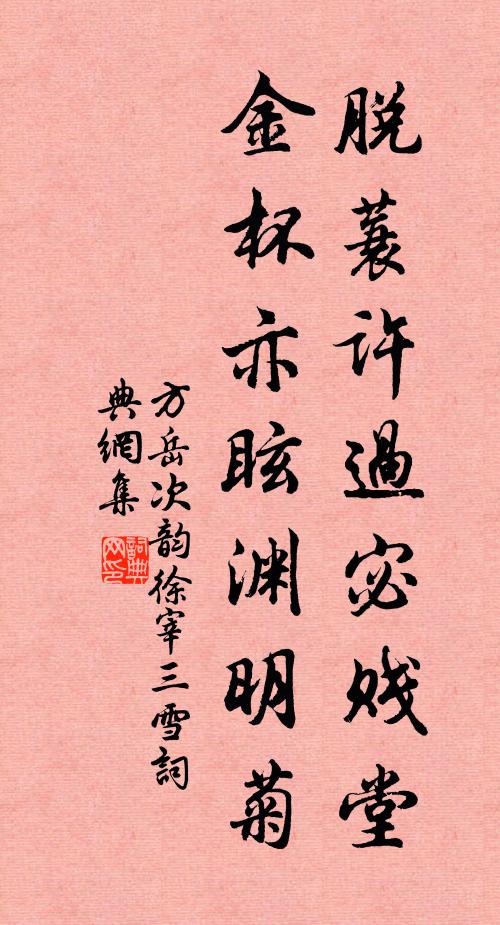 脱蓑许過宓贱堂
金杯亦眩渊明菊
方岳次韵徐宰三雪詞
典網集
詞典
网印